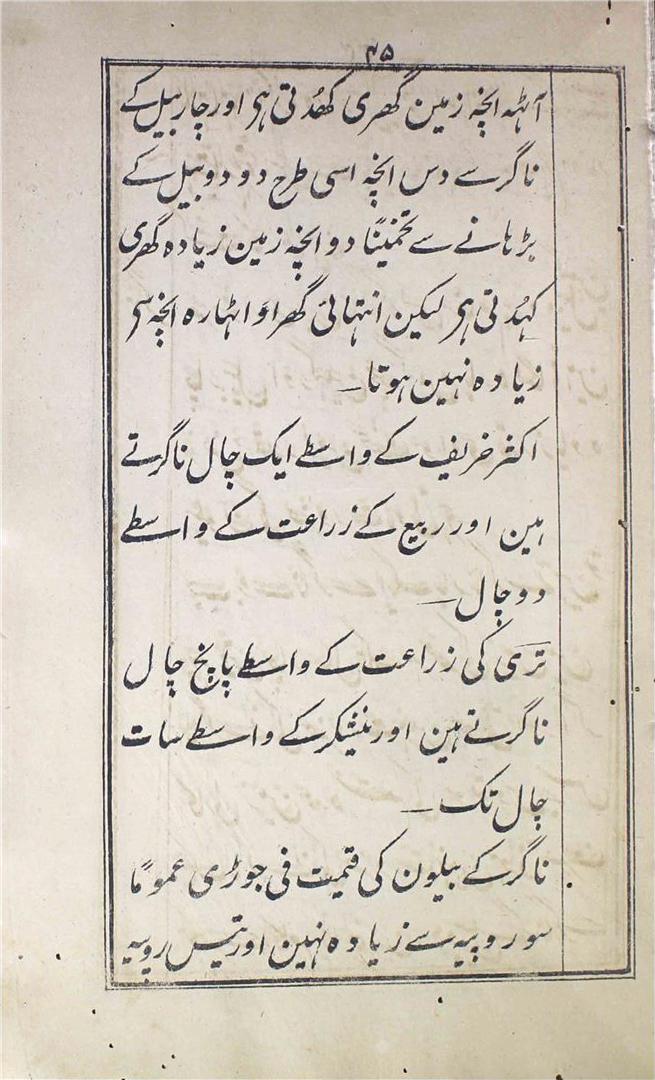 ۴۵
آٹہہ انچہ زمین گھری کھُدتی ہی اور چار بیل کے
ناگر سے دس انچہ اسی طرح دو دو بیل کے
بڑہانے سے تخمینًا دو انچہ زمین زیادہ گھری
کہُدتی ہی لیکن انتہائی گھراؤ اٹہارہ انچہ سی
زیادہ نہین ہوتا۔
اکثر خریف کے واسطے ایک چال ناگرتے
ہین اور ربیع کے زراعت کے واسطے
دو چال۔
ترَی کی زراعت کے واسطے پانچ چال
ناگرتے ہین اور نیشکر کے واسطے سات
چال تک۔
ناگر کے بیلون کی قیمت فی جوڑی عمومًا
سو روپیہ سے زیادہ نہین اور تیس روپیہ